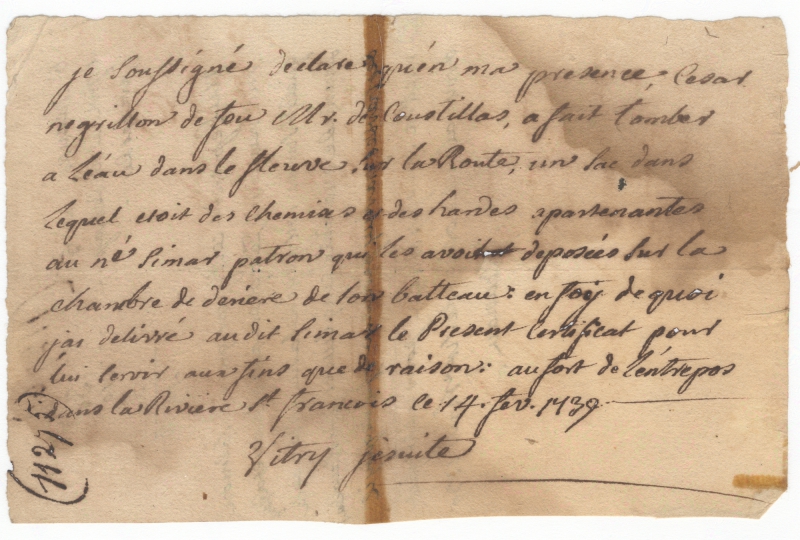 je soussigné declare quén ma presence, Cesar
negrillon de feu Mr. de Coustillas, a fait tomber
a Léau dans le fleuve sur la Route, un sac dans
Lequel etoit des chemises et des hardes apartenantes
au né Simar patron qui les avoit deposées sur la
chambre de dériere de son batteau: en foy de quoi
jai delivré audit Simar le Present Certificat pour
lui servir aux fins que de raison: au fort de Léntrepos
dans la Riviere St. francois ce 14. fev. 1739
Vitry jésuite
(11275)